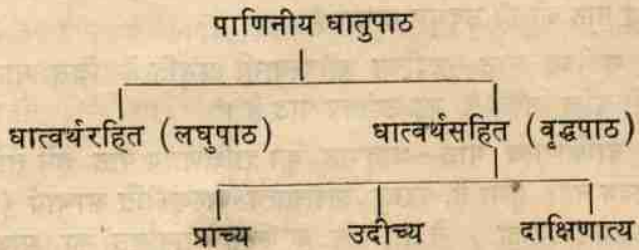 पाणिनीय धातुपाठ
धात्वर्थरहित (लघुपाठ) धात्वर्थसहित (वृद्धपाठ)
प्राच्य उदीच्य दाक्षिणात्य